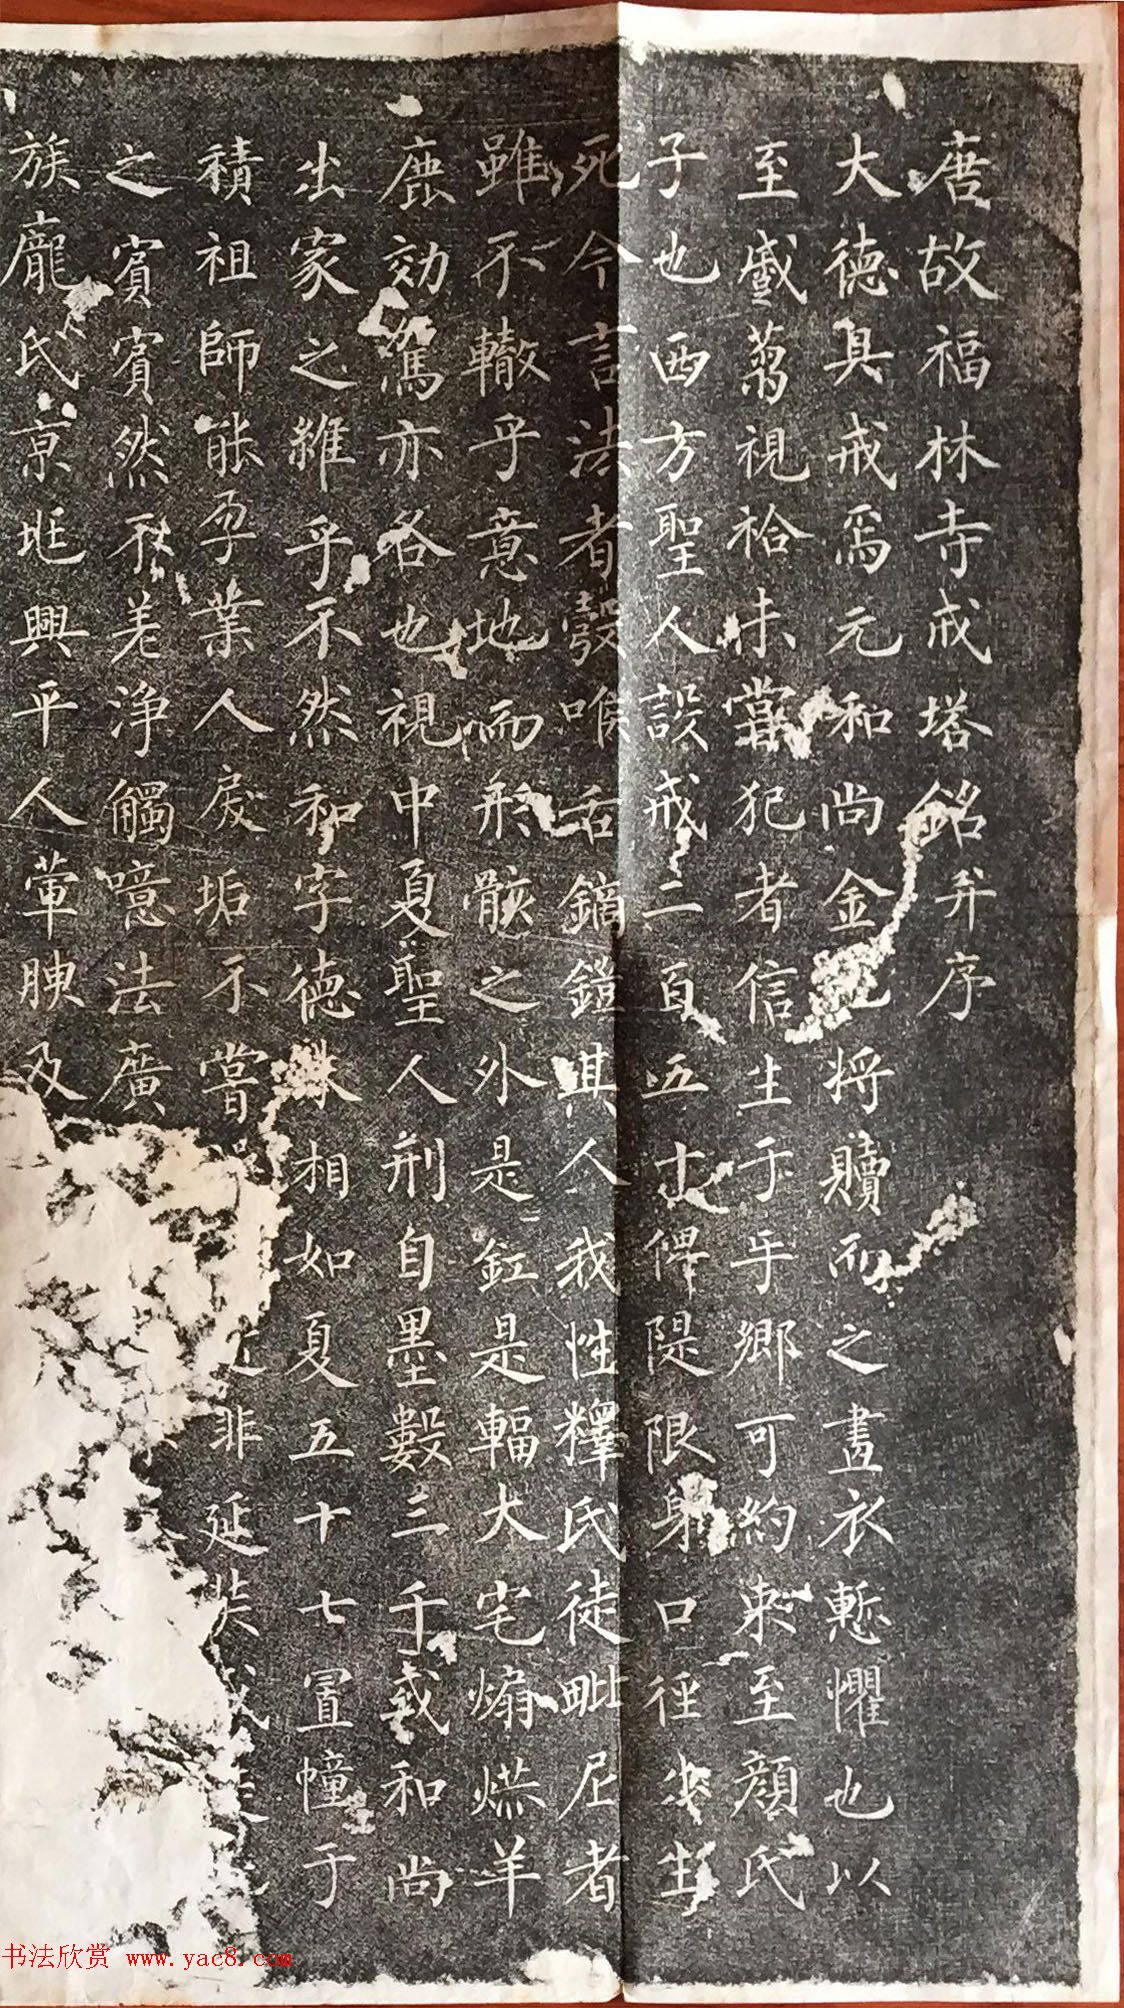 唐故福林寺戒塔銘并序
大德具戒焉元和尚金將贖而之畫衣慙懼也以
至戲蒭視袷未嘗犯者信生于乎鄉可約束至顏氏
子也西方聖人設戒二百五十俾隄限身口徑生
死今言法者瞉喉舌鏑鎧其人我性釋氏徒毗尼者
雖不轍乎意地而形骸之外是釭是輻大宅煽燕羊
鹿効駕亦各也視中夏聖人刑自墨數三千或和尚
出家之雄乎不然和字德本相如夏五十七置幢于
積祖師能孕業人戾垢不嘗非延
之賓賓然不羌淨觸噫法廣
族龐氏京兆興平人葷腴及
书法欣赏 www.yac8.com